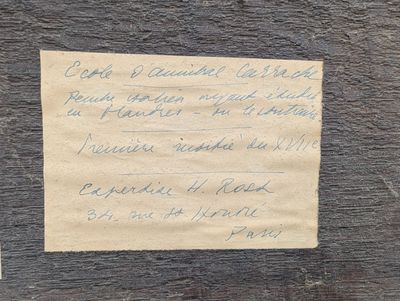 Ecole d'Annibal Carrache
Peintre italien ayant étudié
en Flandres - ou le contraire
Première moitié du XVIIe
Expertise H. Rosh
34, rue St Honoré
Paris